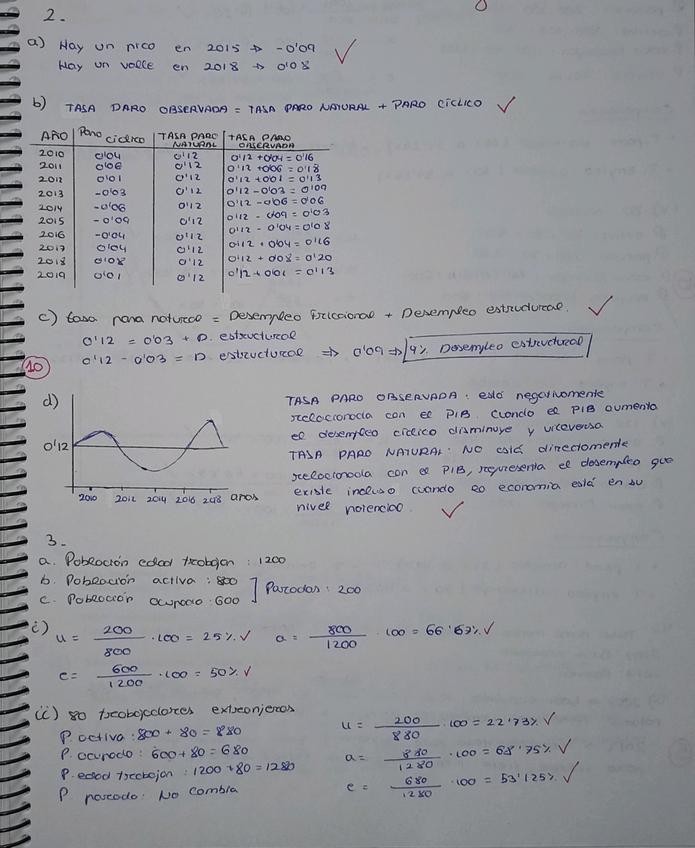 2.
a) Hay un pico en 2015 → -0'09
Hay un valle en 2018 → 0'08
b) TASA PARO OBSERVADA = TASA PARO NATURAL + PARO CÍCLICO
AÑO Paro cíclico TASA PARO NATURAL TASA PARO OBSERVADA
2010 0'04 0'12 0'12 + 0'04 = 0'16
2011 0'06 0'12 0'12 + 0'06 = 0'18
2012 0'01 0'12 0'12 + 0'01 = 0'13
2013 -0'03 0'12 0'12 - 0'03 = 0'09
2014 -0'06 0'12 0'12 - 0'06 = 0'06
2015 -0'09 0'12 0'12 - 0'09 = 0'03
2016 -0'04 0'12 0'12 - 0'04 = 0'08
2017 0'04 0'12 0'12 + 0'04 = 0'16
2018 0'08 0'12 0'12 + 0'08 = 0'20
2019 0'01 0'12 0'12 + 0'01 = 0'13
c) tasa paro natural = Desempleo friccional + Desempleo estructural.
0'12 = 0'03 + D. estructural
0'12 - 0'03 = D estructural ⇒ 0'09 ⇒ 9% Desempleo estructural
10
d)
0'12
2010 2012 2014 2016 2018 años
TASA PARO OBSERVADA: está negativamente
relacionada con el PIB. Cuando el PIB aumenta
el desempleo cíclico disminuye y viceversa
TASA PARO NATURAL: NO está directamente
relacionada con el PIB, representa el desempleo que
existe incluso cuando la economía está en su
nivel potencial.
3.
a. Población edad trabajar: 1200
b. Población activa: 800
c. Población ocupada: 600
Parados: 200
i) u = 200/800 · 100 = 25% a = 800/1200 · 100 = 66'67%
e = 600/1200 · 100 = 50%
ii) 80 trabajadores extranjeros
P activa: 800 + 80 = 880
P. ocupada: 600 + 80 = 680
P. edad trabajar: 1200 + 80 = 1280
P parada: No cambia
u = 200/880 · 100 = 22'73%
a = 880/1280 · 100 = 68'75%
e = 680/1280 · 100 = 53'125%